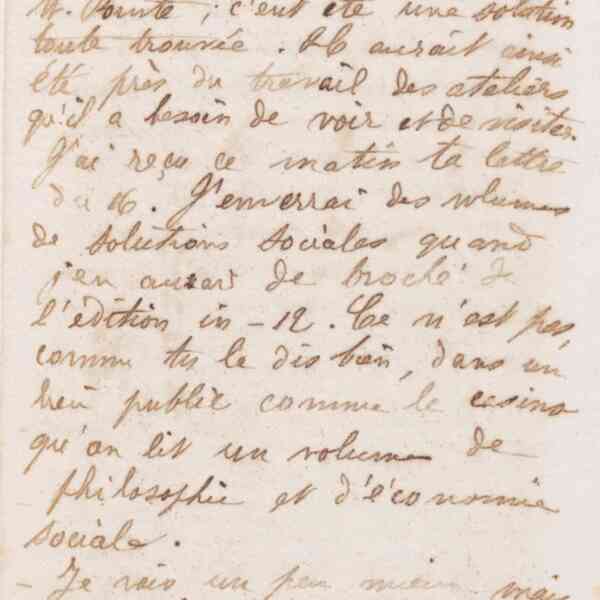 Pointe ; c'eut été une solution
toute trouvée. Il aurait ainsi
été près du travail des ateliers
qu'il a besoin de voir et de visiter.
J'ai reçu ce matin ta lettre
du 16. J'enverrai des volumes
de solutions sociales quand
j'en aurai de broché de
l'édition in-12. Ce n'est pas,
comme tu le dis bien, dans un
lieu public comme le casino
qu'on lit un volume de
philosophie et d'économie
sociale.
- Je vois un peu mieux mais